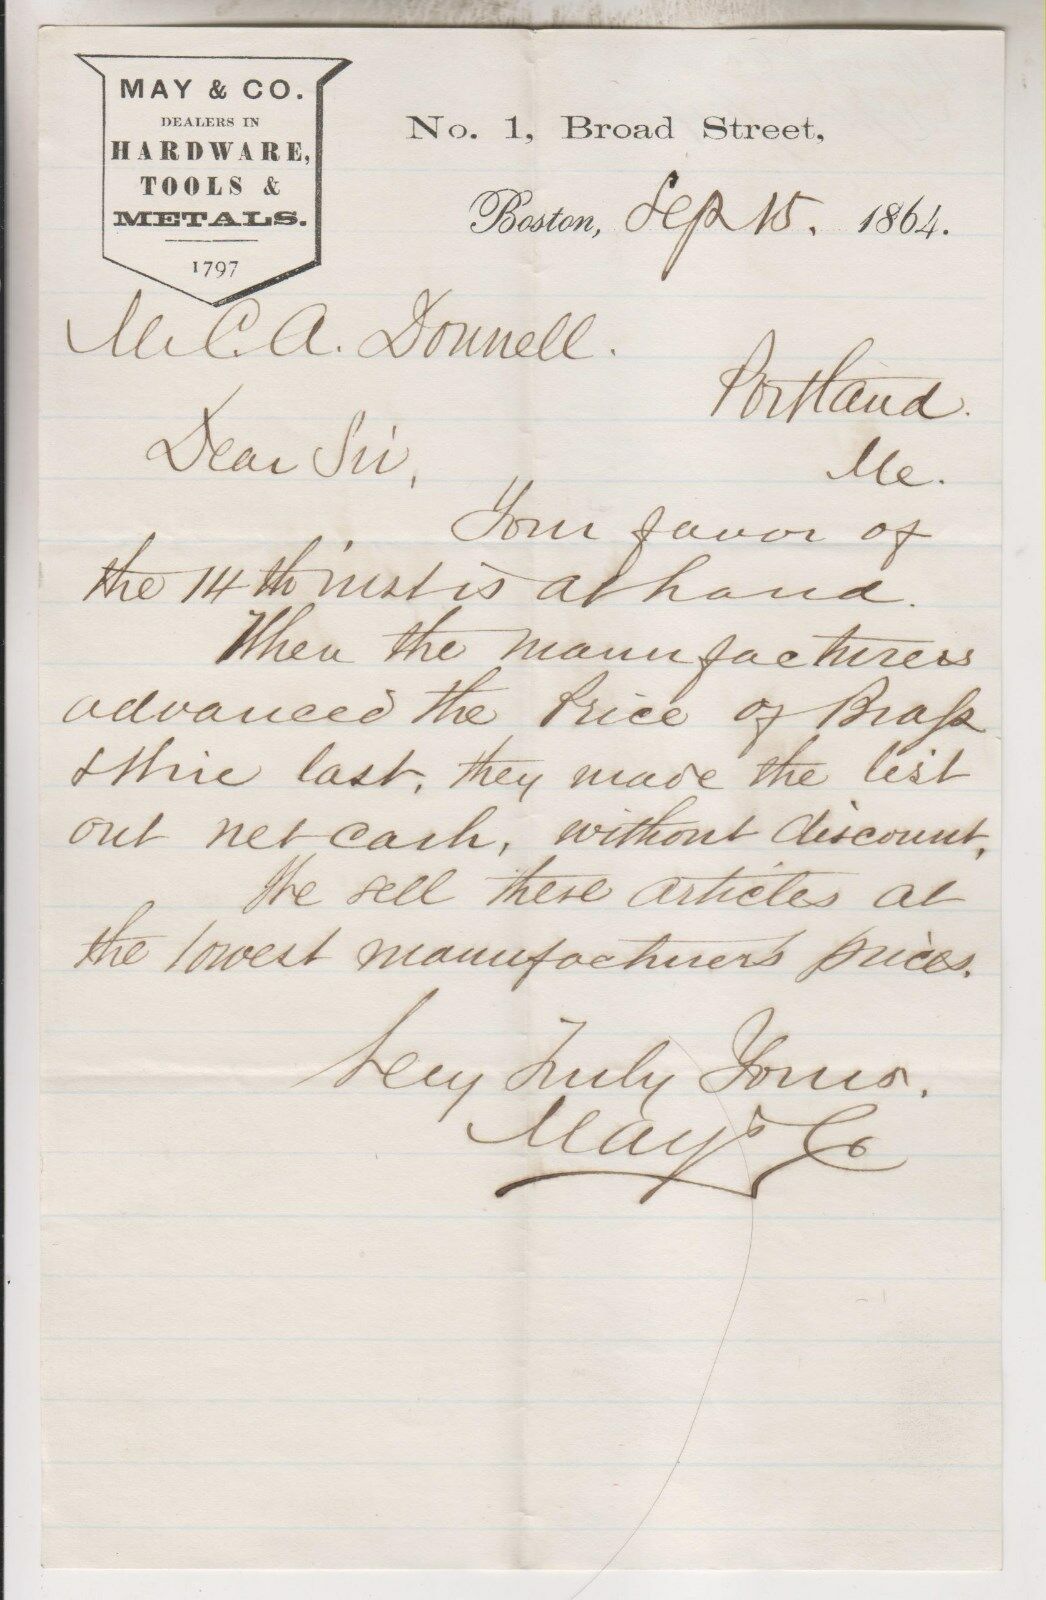 MAY & CO.
DEALERS IN
HARDWARE,
TOOLS &
METALS.
1797
No. 1, Broad Street,
Boston, Sep 15. 1864.
Mr C. A. Donnell.
Portland.
Me.
Dear Sir,
Your favor of
the 14th inst is at hand.
When the manufacturers
advanced the Price of Brass
& Wire last, they made the list
out net cash, without discount,
We sell these articles at
the lowest manufacturers prices.
Very Truly Yours.
May & Co